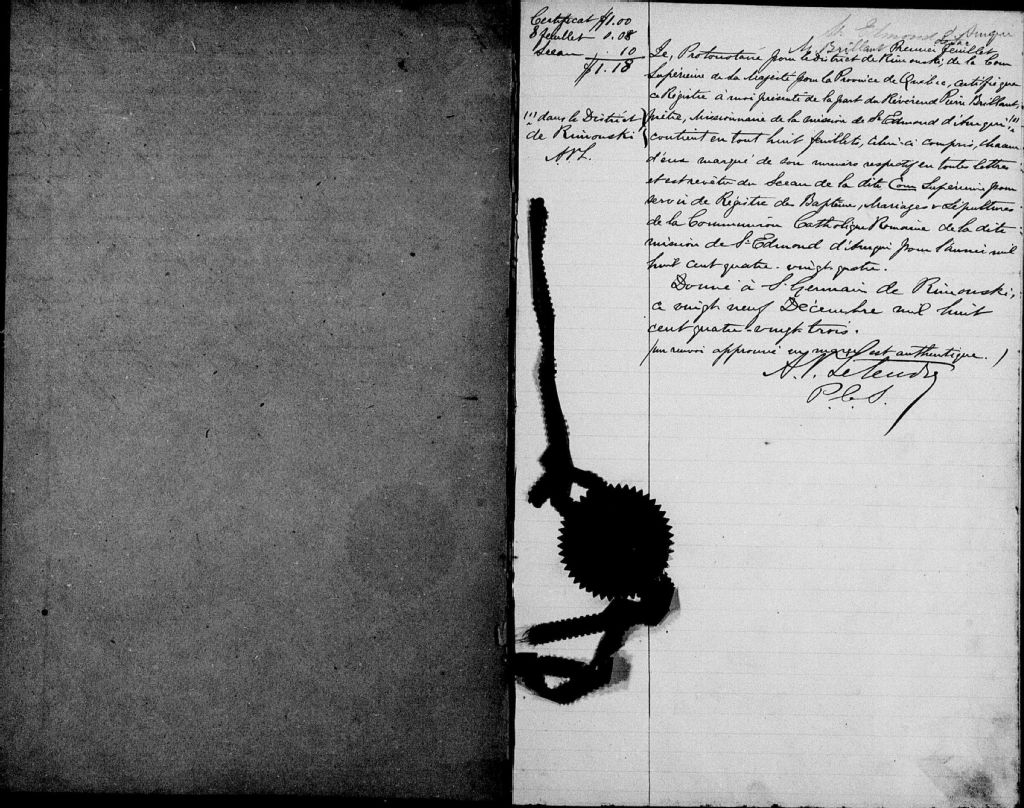 Certificat $1.00
8 feuillets 0.08
Sceau . 10
$1.18
(1) dans le District
de Rimouski
A.P.L.
St Edmond d'Auqui
M. Brillant Ptre Premier feuillet
Je, Protonotaire pour le District de Rimouski, de la Cour
Supérieure de Sa Majesté pour la Province de Québec, certifie que
ce Régistre à moi présenté de la part du Révérend Pierre Brillant,
prêtre, Missionnaire de la mission de St Edmond d'Auqui (1)
contient en tout huit feuillets, celui-ci compris, chacun
d'eux marqué de son numéro respectif en toutes lettres
et est revêtu du Sceau de la dite Cour Supérieure pour
servir de Régistre des Baptêmes, Mariages & Sépultures
de la Communion Catholique Romaine de la dite
mission de St Edmond d'Auqui pour l'année mil
huit cent quatre-vingt-quatre.
Donné à St Germain de Rimouski,
ce vingt neuf Décembre mil huit
cent quatre-vingt-trois.
(un renvoi approuvé en marge est authentique.)
A. P. Letendre
P.C.S.